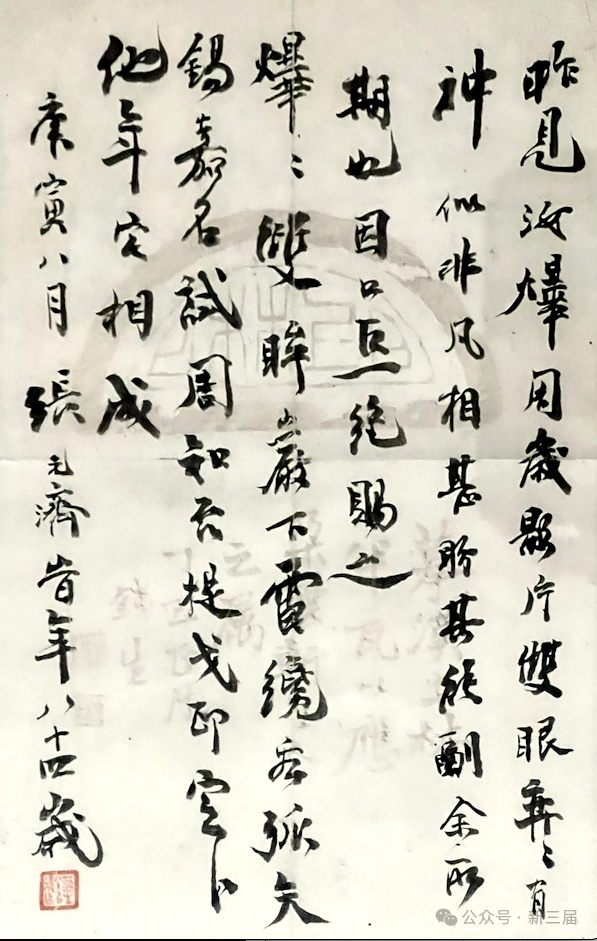 昨見爗周歲影片雙眼奕〻有
神似非凡相甚盼其能副余所
期也因口占一絕賜之
爗〻雙眸巖下電纔看弧矢
錫嘉名試周知否提戈印定卜
他年宅相成
庚寅八月張元濟旹年八十四歲
公众号·新三届